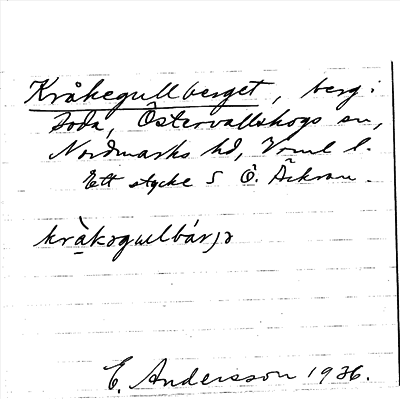 Kråkegullberget, berg i
Soda, Östervallskogs sn,
Nordmarks hd, Vrml l.
Ett stycke S Ö. Äckran.
kràkəgulbárjə
E. Andersson 1936.